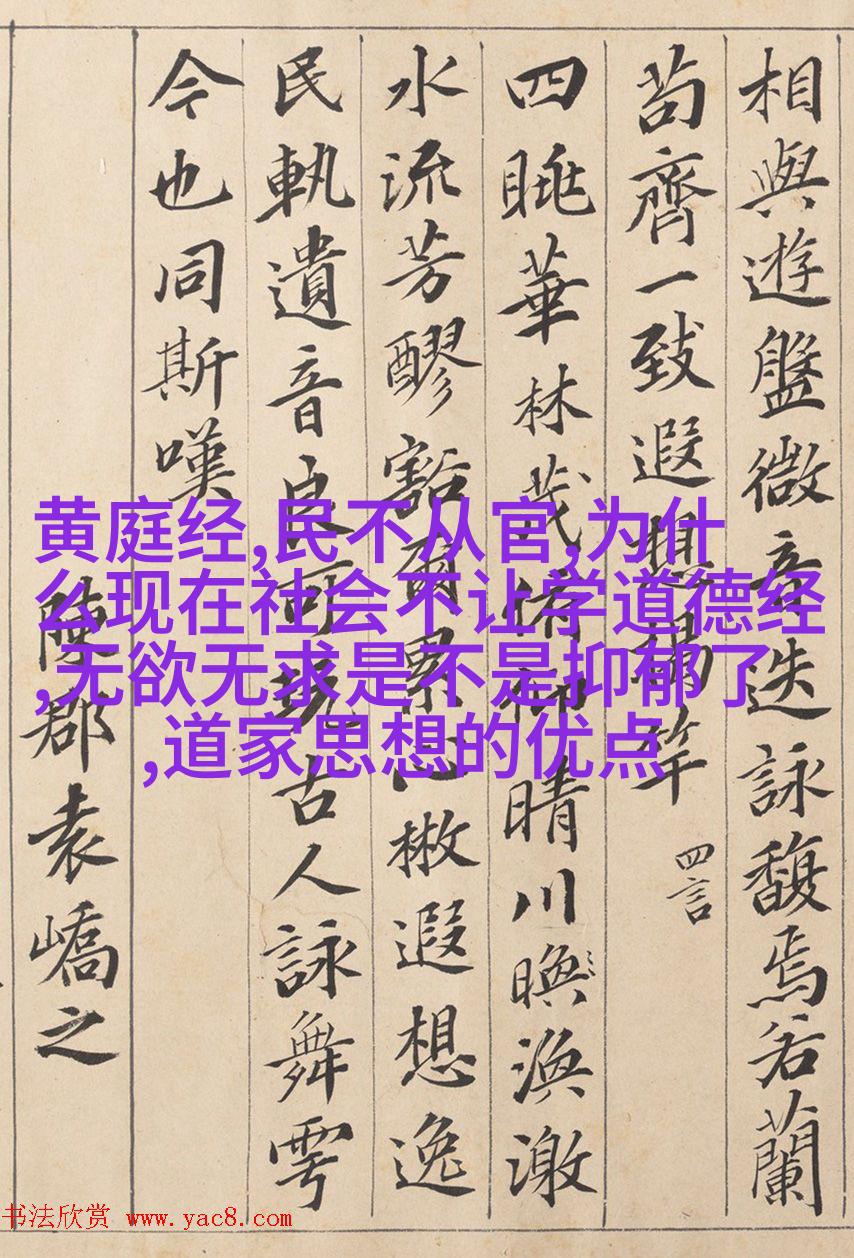 相與遊盤微音迭詠馥焉若蘭
苟齊一致遐想揭竿
四言
四眺華林茂俯仰晴川渙激
水流芳醪豁爾累心散遐想逸
民軌遺音良可翫古人詠舞雩
今也同斯嘆
陳郡袁嶠之
黄庭经,民不从官,为什
么现在社会不让学道德经
,无欲无求是不是抑郁了
,道家思想的优点
书法欣赏 www.yac8.com